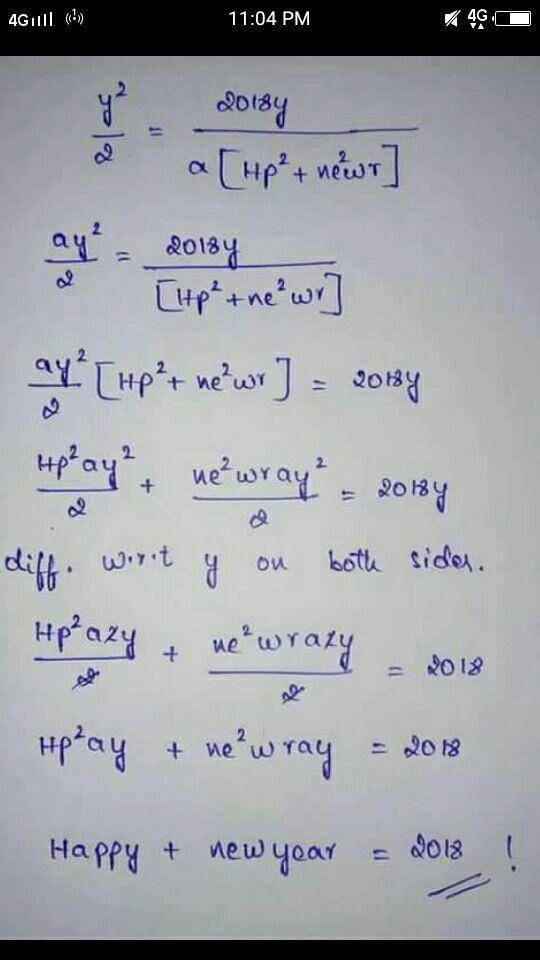 4G 11:04 PM 4G
y²/2 = 2018y / a[Hp² + ne²wr]
ay²/2 = 2018y / [Hp² + ne²wr]
ay²/2 [Hp² + ne²wr] = 2018y
Hp²ay²/2 + ne²wray²/2 = 2018y
diff. w.r.t y on both sides.
Hp²a2y/2 + ne²wra2y/2 = 2018
Hp²ay + ne²wray = 2018
Happy + newyear = 2018 !